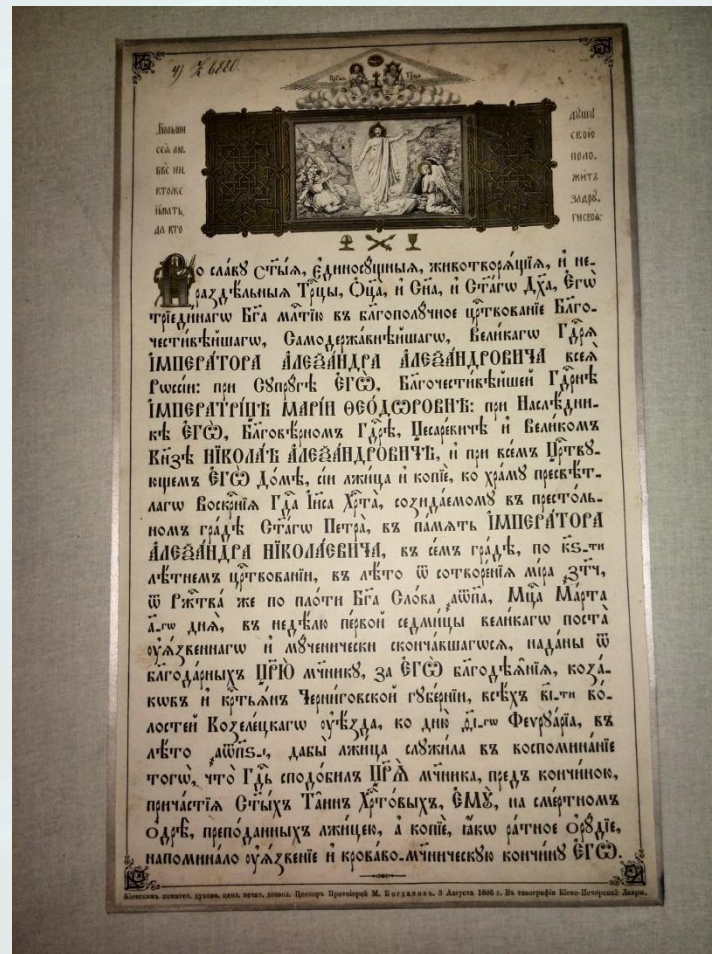 ч) № 6880.
Пр҃сл. Трⷪ҇ца
Больши
сеѧ лю-
бве ни-
ктоже
и҆мать,
да кто
дꙋшꙋ
свою̀
поло-
житъ
за дрꙋ-
ги своѧ̀:
Во славꙋ Ст҃ы́ѧ, Є҆диносꙋ́щныѧ, животворѧ́щїѧ, и҆ не-
раздѣ́льныѧ Трⷪ҇цы, Ѻ҆ц҃а̀, и҆ Сн҃а, и҆ Ст҃а́гѡ Дх҃а, Є҆гѡ̀
трїеди́нагѡ Бг҃а млⷭ҇тїю въ бл҃гополꙋ́чное црⷭ҇твованїе Бл҃го-
чести́вѣйшагѡ, Самодержа́внѣйшагѡ, Вели́кагѡ Гдⷭ҇рѧ
І҆МПЕРА́ТОРА А҆ЛЕѮА́НДРА А҆ЛЕѮА́НДРОВИЧА всеѧ̀
Рѡссі́и: при Сꙋпрꙋ́гѣ Є҆ГѠ̀, Бл҃гочести́вѣйшей Гдⷭ҇рнѣ
І҆МПЕРАТРІ́ЦѢ МАРІ́И ѲЕО́ДѠРОВНѢ: при Наслѣ́дни-
кѣ Є҆ГѠ̀, Бл҃говѣ́рномъ Гдⷭ҇рѣ, Цесаре́вичѣ и҆ Вели́комъ
Кн҃зѣ НІКОЛА́Ѣ А҆ЛЕѮА́НДРОВИЧѢ, и҆ при все́мъ Црⷭ҇твꙋ-
ющемъ Є҆ГѠ̀ До́мѣ, сїи лжи́ца и҆ копїѐ, ко хра́мꙋ пресвѣ́т-
лагѡ Воскрⷭ҇нїѧ Гдⷭ҇а І҆и҃са Хрⷭ҇та̀, созида́емомꙋ въ престо́ль-
номъ гра́дѣ Ст҃а́гѡ Петра̀, въ па́мѧть І҆МПЕРА́ТОРА
А҆ЛЕѮА́НДРА НІКОЛА́ЕВИЧА, въ се́мъ гра́дѣ, по к҃ѕ-ти
лѣ́тнемъ црⷭ҇твованїи, въ лѣ́то ѿ сотворе́нїѧ мі́ра ҂зт҃пѳ,
ѿ Ржⷭ҇тва̀ же по пло́ти Бг҃а Сло́ва ҂аѡ҃па, Мцⷭ҇а Ма́рта
а҃-гѡ днѧ̀, въ недѣ́лю пе́рвой седми́цы вели́кагѡ поста̀
оу҆ѧ́звеннагѡ и҆ мꙋ́ченически сконча́вшагѡсѧ, нада́ны ѿ
благода́рныхъ ЦР҃Ю̀ мч҃никꙋ, за Є҆ГѠ̀ бл҃годѣѧ́нїѧ, коза́-
кѡвъ и҆ крⷭ҇тьѧ́нъ Черни́говской гꙋбе́рнїи, всѣ́хъ в҃і-ти во́-
лостей Козеле́цкагѡ оу҆ѣ́зда, ко дню̀ д҃і-гѡ Феврꙋа́рїа, въ
лѣ́то ҂аѡ҃пѕ-е, дабы̀ лжи́ца слꙋжи́ла въ воспомина́нїе
тогѡ̀, что̀ Гдⷭ҇ь сподо́билъ ЦР҃Ѧ̀ мч҃ника, предъ кончи́ною,
прича́стїѧ Ст҃ы́хъ Та̑инъ Хрⷭ҇то́выхъ, Є҆МꙊ̀, на сме́ртномъ
ѻ҆дрѣ̀, препо́данныхъ лжи́цею, а҆ копїѐ, ꙗ҆́кѡ ра́тное ѻ҆рꙋ́дїе,
напомина́ло оу҆ѧзве́нїе и҆ крова́во-мч҃ническꙋю кончи́нꙋ Є҆ГѠ̀.
Кіевскимъ комитет. духовн. ценз. печат. дозвол. Цензоръ Протоіерей М. Богдановъ. 3 Августа 1886 г. Въ типографіи Кіево-Печерской Лавры.